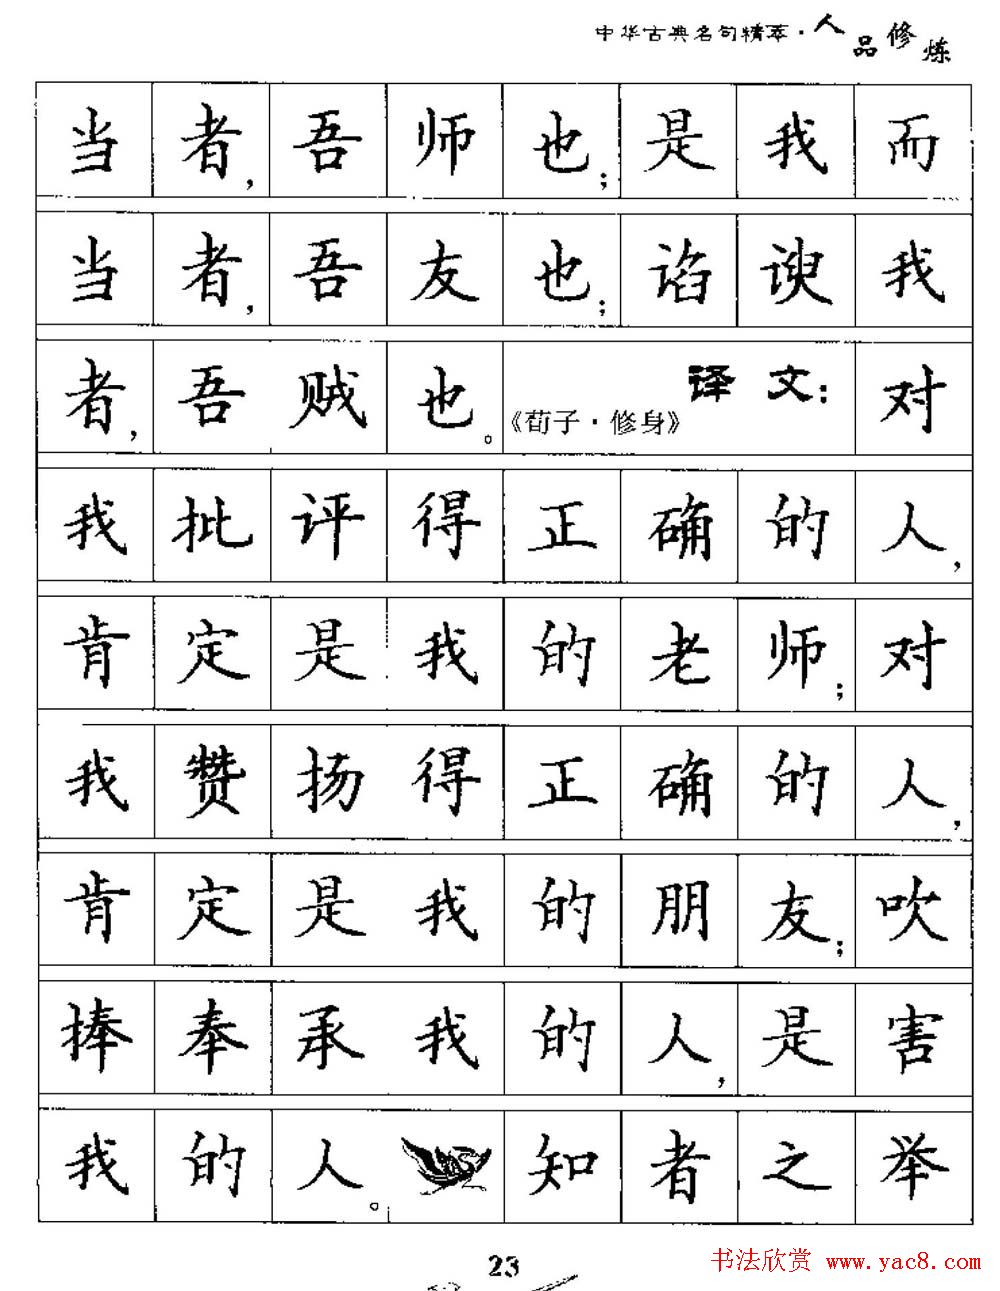 中华古典名句精萃·人品修炼
当者,吾师也;是我而
当者,吾友也;谄谀我
者,吾贼也。《荀子·修身》译文:对
我批评得正确的人,
肯定是我的老师;对
我赞扬得正确的人,
肯定是我的朋友;吹
捧奉承我的人,是害
我的人。知者之举
23
书法欣赏 www.yac8.com